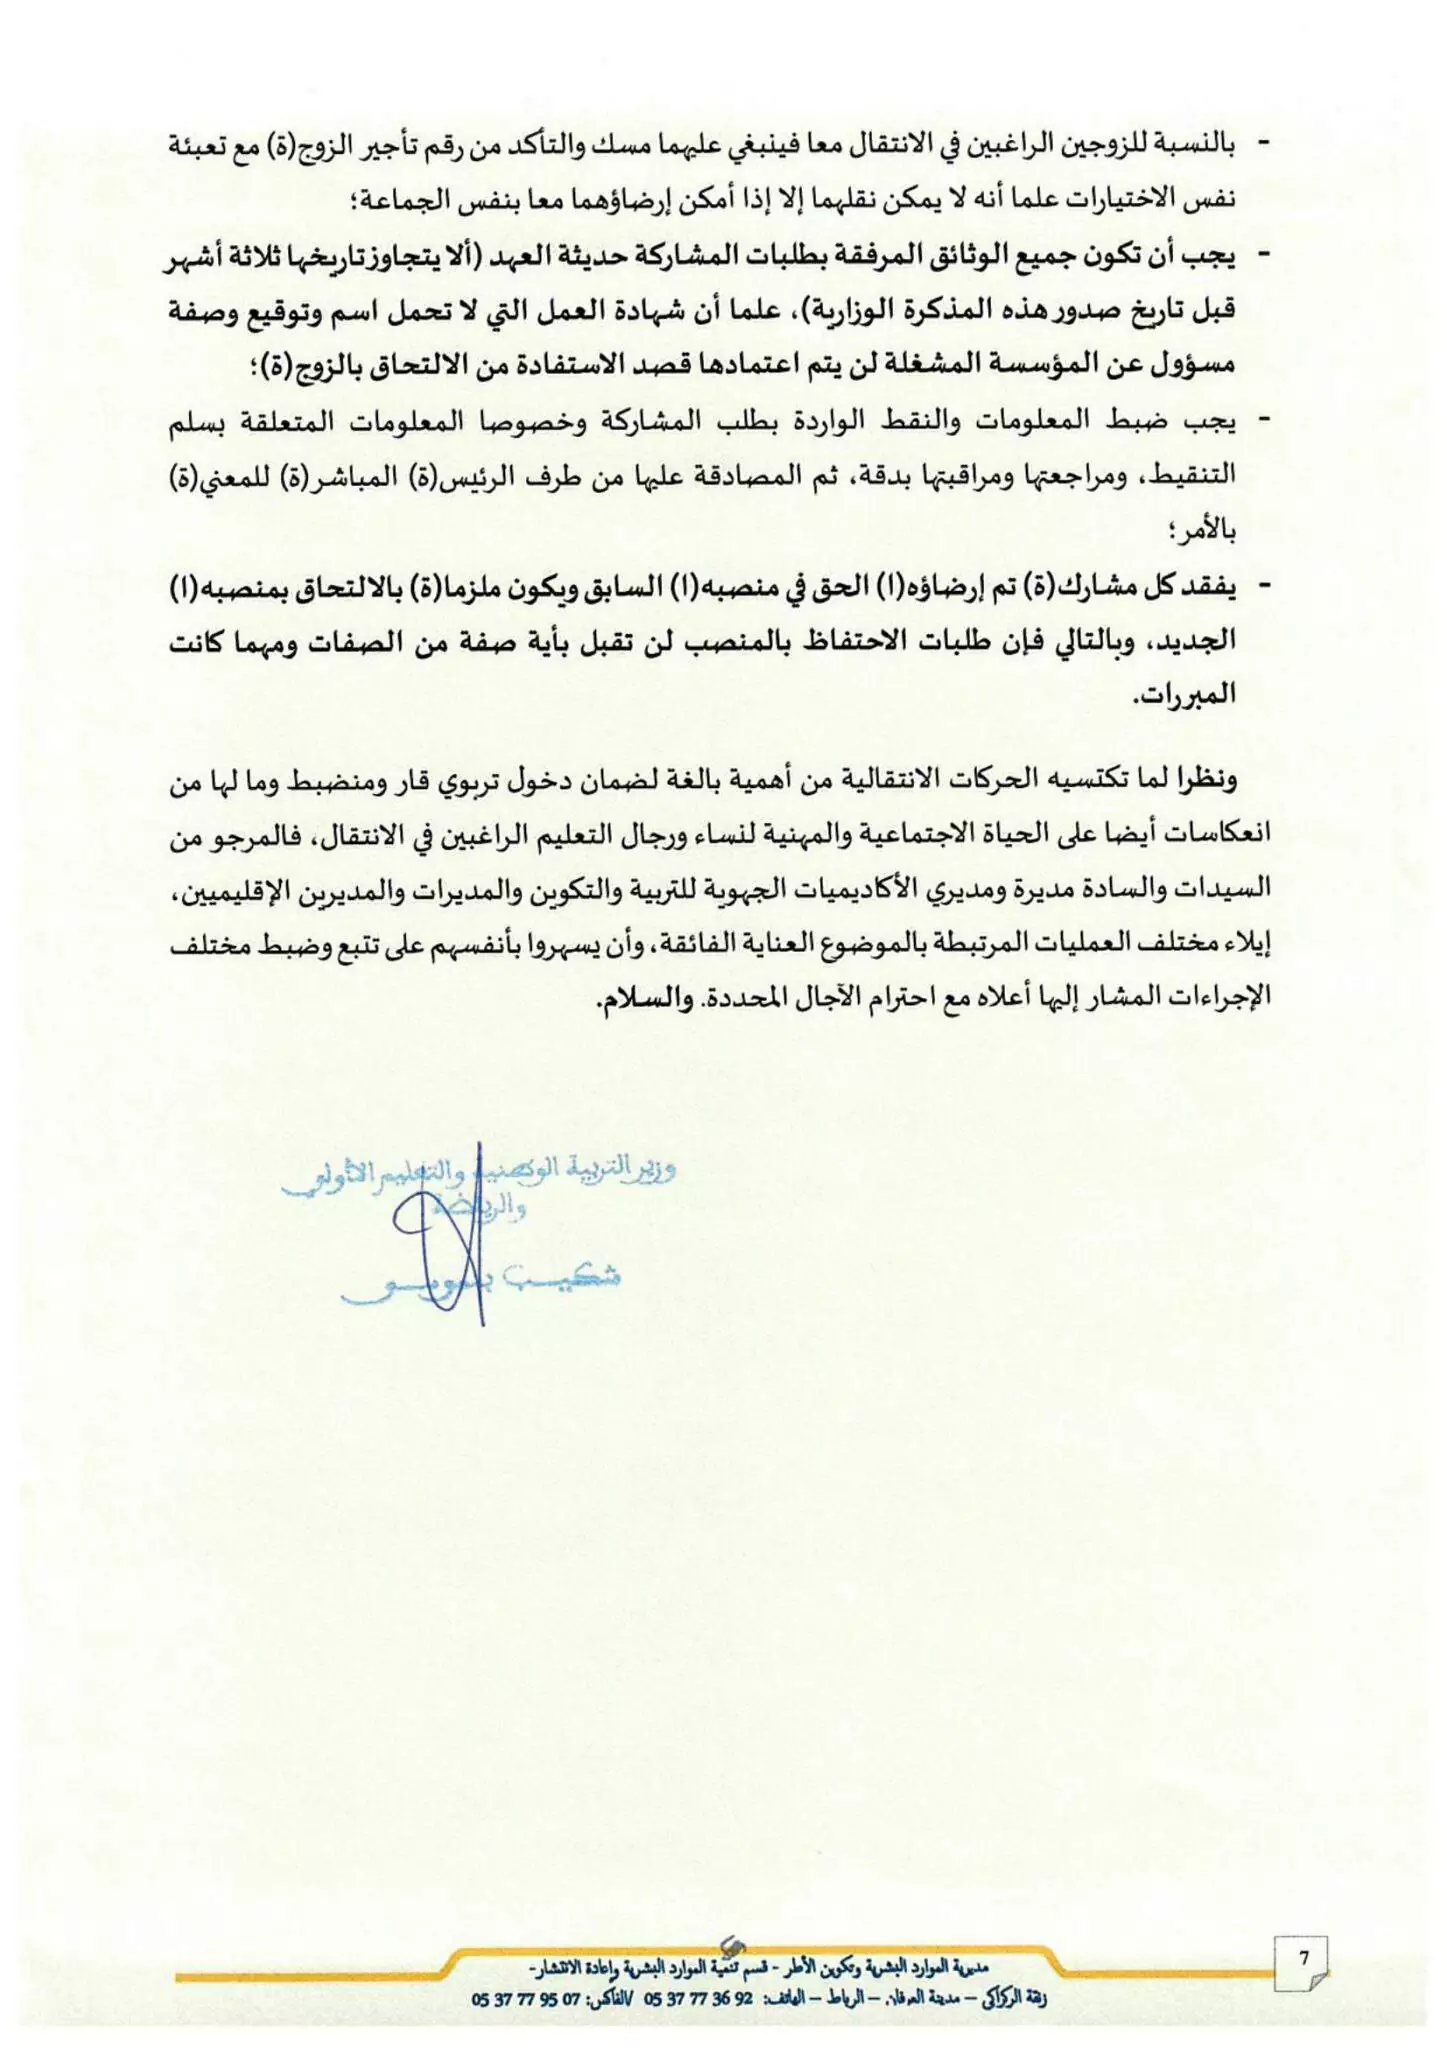 - بالنسبة للزوجين الراغبين في الانتقال معا فينبغي عليهما مسك والتأكد من رقم تأجير الزوج(ة) مع تعبئة
نفس الاختيارات علما أنه لا يمكن نقلهما إلا إذا أمكن إرضاؤهما معا بنفس الجماعة؛
- يجب أن تكون جميع الوثائق المرفقة بطلبات المشاركة حديثة العهد (ألا يتجاوز تاريخها ثلاثة أشهر
قبل تاريخ صدور هذه المذكرة الوزارية)، علما أن شهادة العمل التي لا تحمل اسم وتوقيع وصفة
مسؤول عن المؤسسة المشغلة لن يتم اعتمادها قصد الاستفادة من الالتحاق بالزوج(ة)؛
- يجب ضبط المعلومات والنقط الواردة بطلب المشاركة وخصوصا المعلومات المتعلقة بسلم
التنقيط، ومراجعتها ومراقبتها بدقة، ثم المصادقة عليها من طرف الرئيس(ة) المباشر(ة) للمعني(ة)
بالأمر؛
- يفقد كل مشارك(ة) تم إرضاؤه(ا) الحق في منصبه(ا) السابق ويكون ملزما(ة) بالالتحاق بمنصبه(ا)
الجديد، وبالتالي فإن طلبات الاحتفاظ بالمنصب لن تقبل بأية صفة من الصفات ومهما كانت
المبررات.
ونظرا لما تكتسيه الحركات الانتقالية من أهمية بالغة لضمان دخول تربوي قار ومنضبط وما لها من
انعكاسات أيضا على الحياة الاجتماعية والمهنية لنساء ورجال التعليم الراغبين في الانتقال، فالمرجو من
السيدات والسادة مديرة ومديري الأكاديميات الجهوية للتربية والتكوين والمديرات والمديرين الإقليميين،
إيلاء مختلف العمليات المرتبطة بالموضوع العناية الفائقة، وأن يسهروا بأنفسهم على تتبع وضبط مختلف
الإجراءات المشار إليها أعلاه مع احترام الآجال المحددة. والسلام.
وزير التربية الوطنية والتعليم الأولي
والرياضة
شكيب بنموسى
7
مديرية الموارد البشرية وتكوين الأطر - قسم تنمية الموارد البشرية وإعادة الانتشار-
زنقة الركراكي – مدينة العرفان – الرباط – الهاتف: 05 37 77 36 92 /الفاكس: 05 37 77 95 07